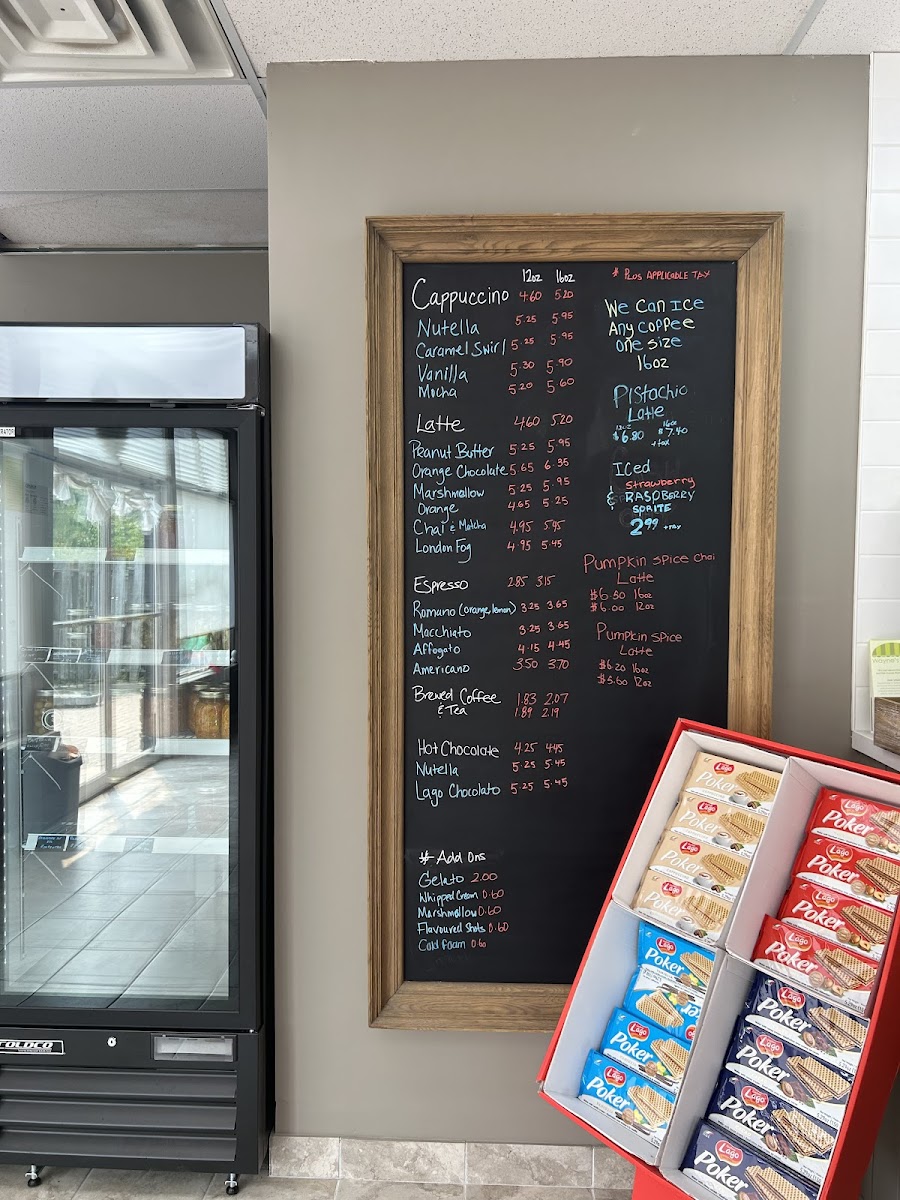 12oz 16oz
Cappuccino 4.60 5.20
Nutella 5.25 5.95
Caramel Swirl 5.25 5.95
Vanilla 5.30 5.90
Mocha 5.20 5.60
Latte 4.60 5.20
Peanut Butter 5.25 5.95
Orange Chocolate 5.65 6.35
Marshmellow 5.25 5.95
Orange 4.65 5.25
Chai & Matcha 4.95 5.45
London Fog 4.95 5.45
Espresso 2.85 3.15
Romano (orange, lemon) 3.25 3.65
Macchiato 3.25 3.65
Affogato 4.15 4.45
Americano 3.50 3.70
Brewed Coffee 1.83 2.07
& Tea 1.89 2.19
Hot Chocolate 4.25 4.45
Nutella 5.25 5.45
Lago Chocolato 5.25 5.45
# Add Ons
Gelato 2.00
Whipped Cream 0.60
Marshmallow 0.60
Flavoured Shots 0.60
Cold foam 0.60
* Plus Applicable Tax
We Can Ice
Any Coffee
One Size
16oz
Pistachio
Latte
12oz 16oz
$6.80 $7.40
+ tax
Iced
Strawberry
& Raspberry
Sprite
2.99 + tax
Pumpkin Spice Chai
Latte
$6.50 16oz
$6.00 12oz
Pumpkin Spice
Latte
$6.20 16oz
$5.60 12oz
COLDCO
Lago
Poker
Lago
Poker
Lago
Poker
Lago
Poker
Lago
Poker
Lago
Poker
Lago
Poker
Lago
Poker
Lago
Poker
Lago
Poker
Lago
Poker
Lago
Poker
Lago
Poker
Lago
Poker
Lago
Poker